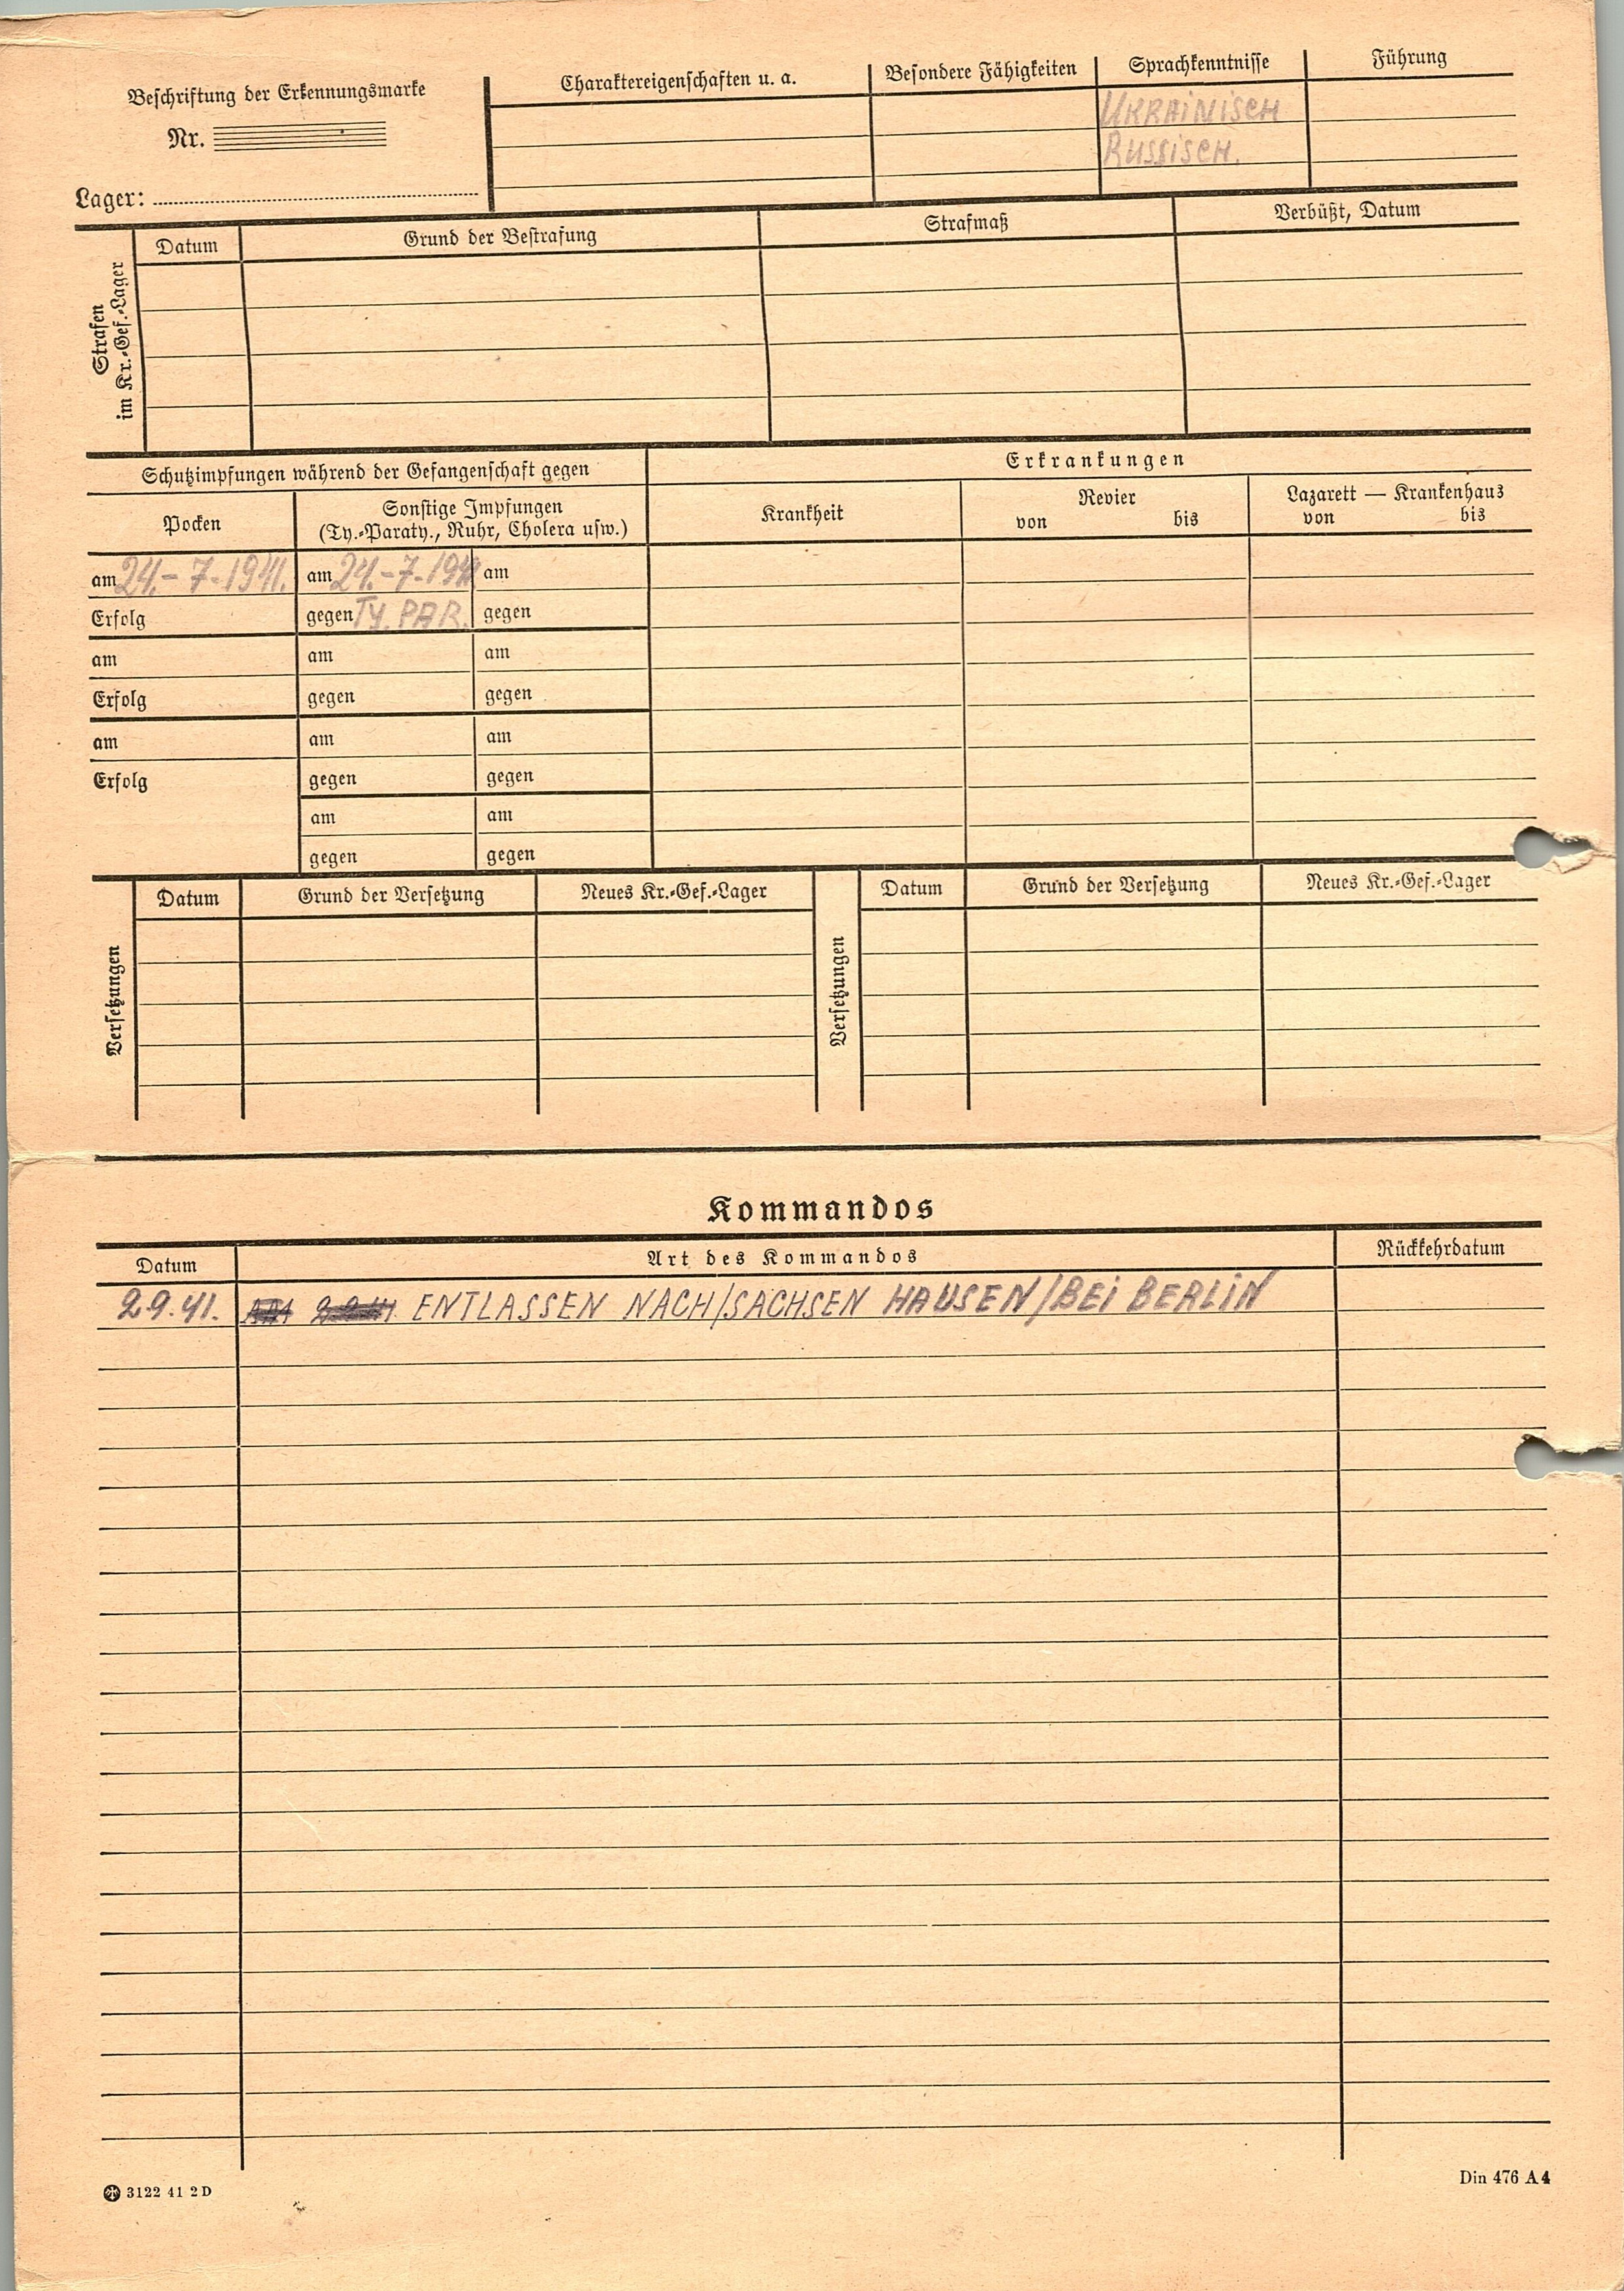 Beschriftung der Erkennungsmarke
Nr.
Lager:
Charaktereigenschaften u. a.
Besondere Fähigkeiten
Sprachkenntnisse
Führung
UKRAINISCH
RUSSISCH.
Strafen
im Kr.-Gef.-Lager
Datum
Grund der Bestrafung
Strafmaß
Verbüßt, Datum
Schutzimpfungen während der Gefangenschaft gegen
Erkrankungen
Pocken
Sonstige Impfungen
(Ty.-Paraty., Ruhr, Cholera usw.)
Krankheit
Revier
von bis
Lazarett — Krankenhaus
von bis
am 24.-7-1941. am 24.-7-1941 am
Erfolg gegen TY. PAR. gegen
am am am
Erfolg gegen gegen
am am am
Erfolg gegen gegen
am am
gegen gegen
Versetzungen
Datum Grund der Versetzung Neues Kr.-Gef.-Lager
Versetzungen
Datum Grund der Versetzung Neues Kr.-Gef.-Lager
Kommandos
Datum Art des Kommandos Rückkehrdatum
2.9.41. ENTLASSEN NACH/SACHSEN HAUSEN/BEI BERLIN
3122 41 2 D
Din 476 A 4